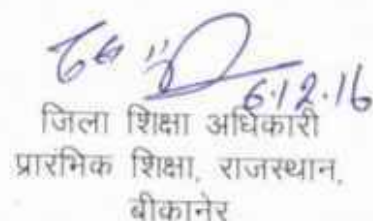 6.12.16
जिला शिक्षा अधिकारी
प्रारंभिक शिक्षा, राजस्थान,
बीकानेर